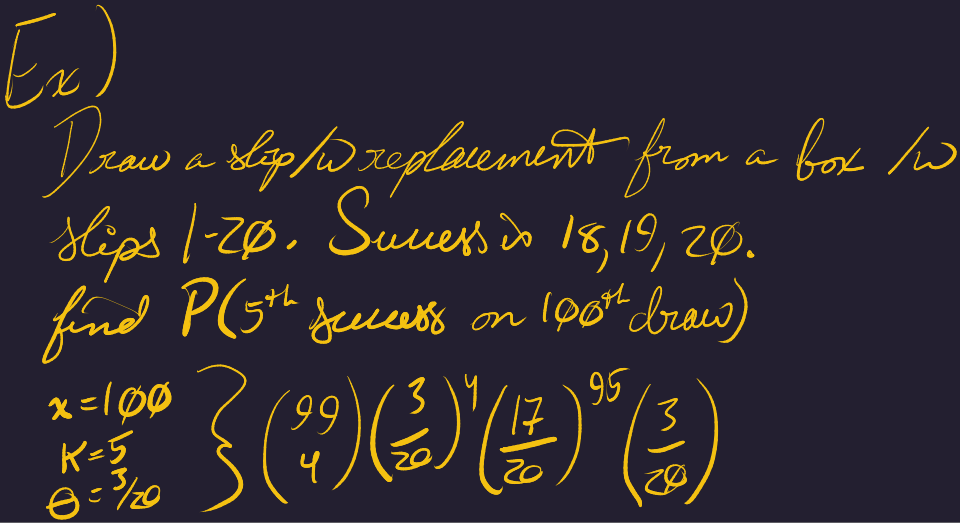 Ex)
Draw a slip /w replacement from a box /w
slips 1-20. Success is 18, 19, 20.
find P(5th success on 100th draw)
x = 100
K = 5
θ = 3/20
} (99 4) (3/20)^4 (17/20)^95 (3/20)